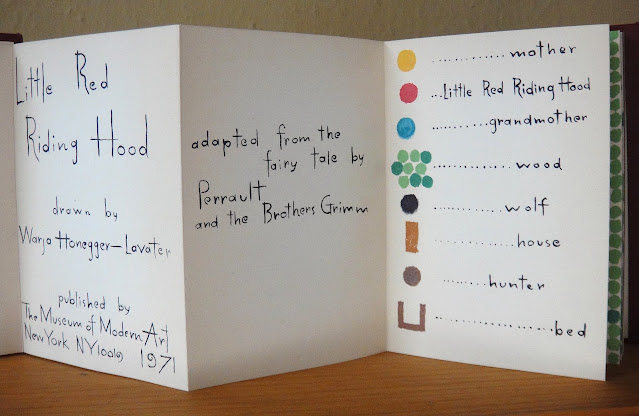 Little Red
Riding Hood
drawn by
Warja Honegger-Lavater
published by
The Museum of Modern Art
New York NY10019 1971
adapted from the
fairy tale by
Perrault
and the Brothers Grimm
.............mother
...Little Red Riding Hood
..........grandmother
.............wood
............wolf
.............house
.........hunter
....................bed